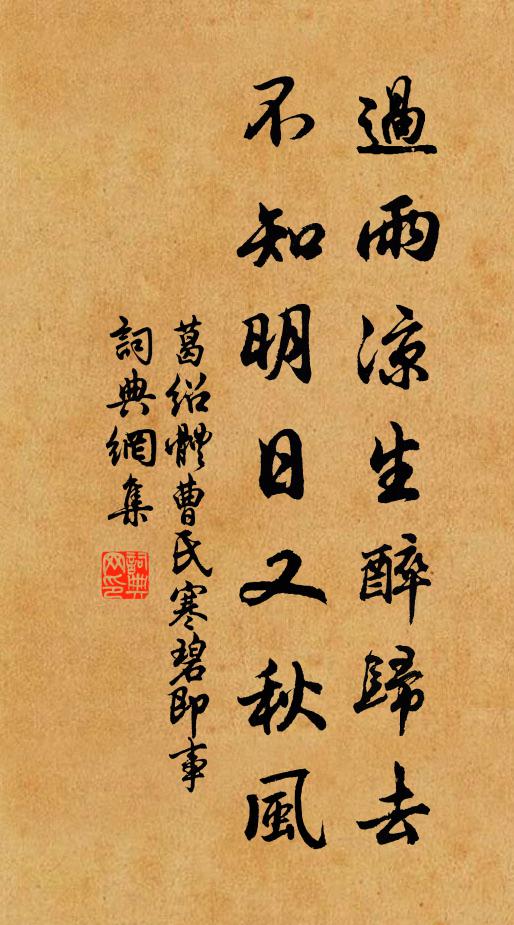 過雨涼生醉歸去
不知明日又秋風
葛紹體曹氏寒碧即事
詞典網集
詞典網印